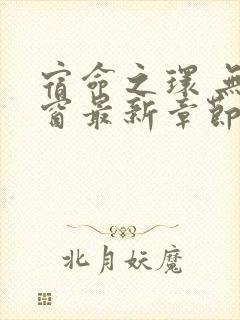 宿命之環 無
窗最新章節
北月妖魔